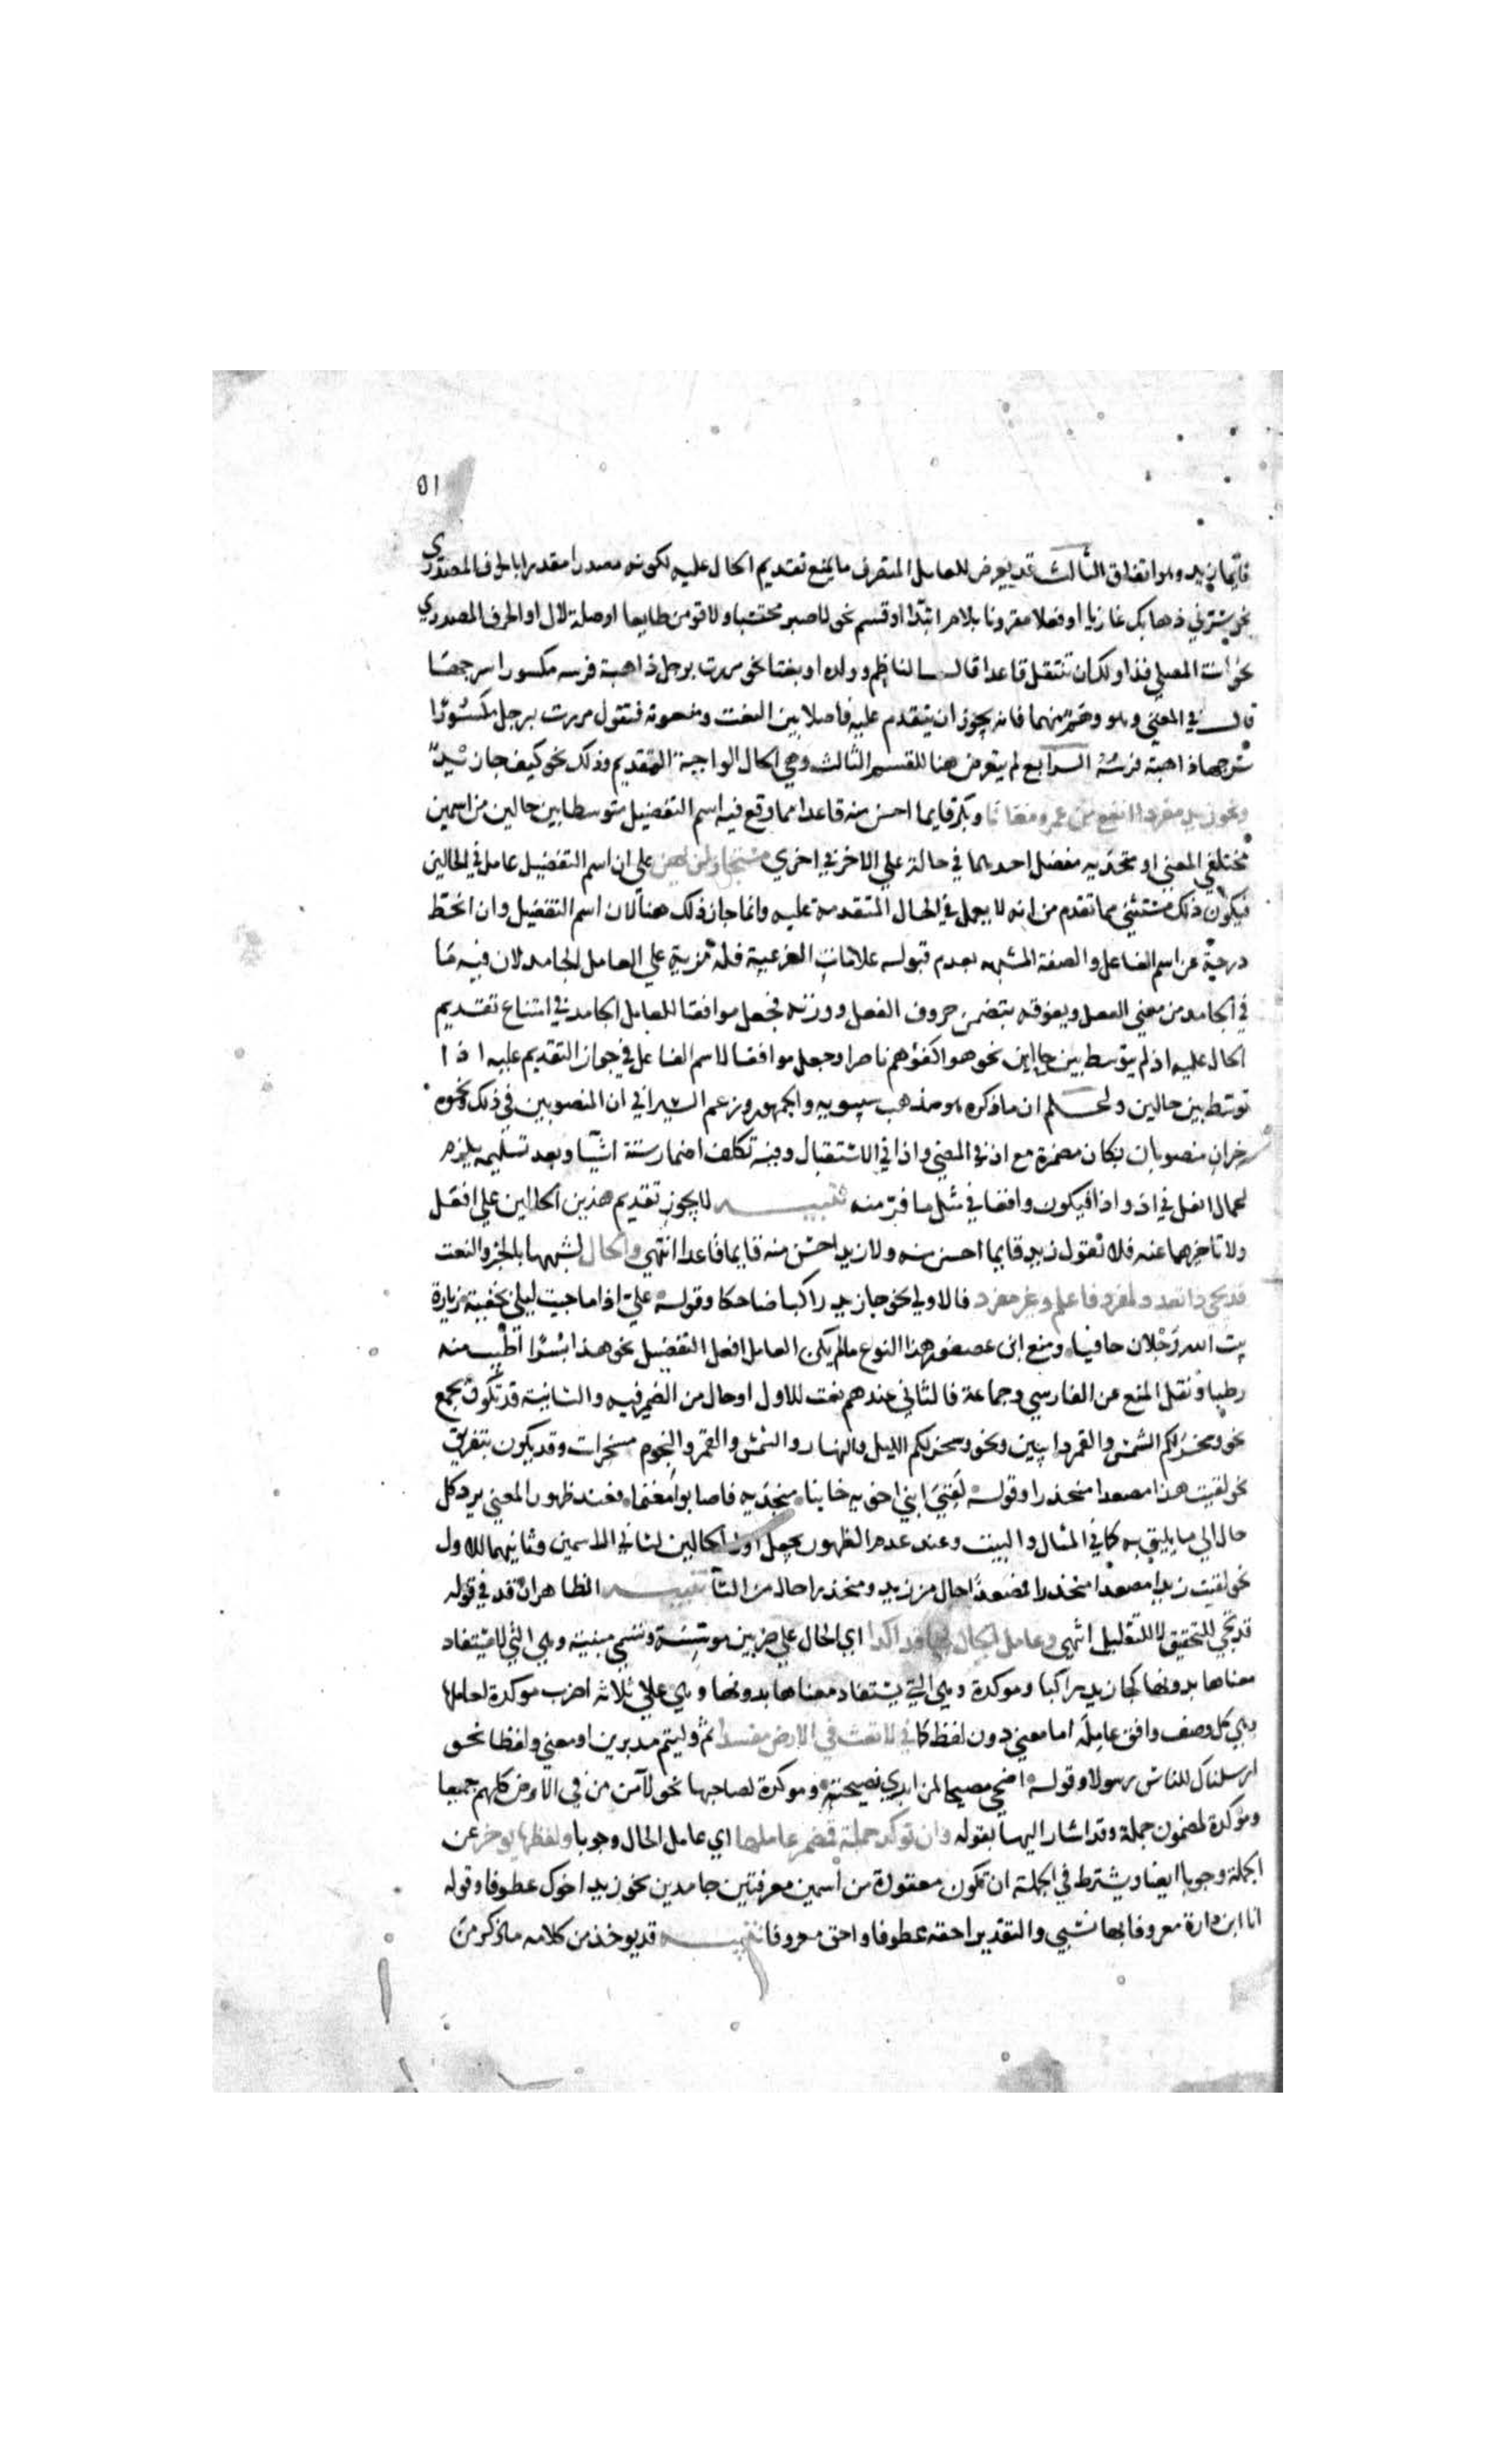 ٥١
قايما زيد وهو اتفاق الثالث قد يعرض للعامل المتصرف ما يمنع تقديم الحال عليه لكونه مصدرا مقدرا بالحرف المصدري
نحو سرني ذهابك غازيا او فعلا مقرونا بلام ابتدا او قسم نحو لاصبر محتسبا ولاقومن طايعا او صلة لال او الحرف المصدري
نحو انت المصلي فذا ولك ان تنتقل قاعدا قال الناظم وولده او نعتا نحو مررت برجل ذاهبة فرسه مكسورا سرجها
قال في المغني وهو وهم منهما فانه يجوز ان يتقدم عليه فاصلا بين النعت ومنعوته فتقول مررت برجل مكسورا
سرجها ذاهبة فرسه الرابع لم يتعرض هنا للقسم الثالث وهي الحال الواجبة التقديم وذلك نحو كيف جا زيد
ونحو زيد مفردا انفع من عمرو معانا وبكر قايما احسن منه قاعدا مما وقع فيه اسم التفضيل متوسطا بين حالين من اسمين
مختلفي المعني او متحديه مفضل احدهما في حالة علي الاخر في اخري مستجاز لن يهن علي ان اسم التفضيل عامل في الحالين
فيكون ذلك مستثني مما تقدم من انه لا يعمل في الحال المتقدمة عليه وانما جاز ذلك هنا لان اسم التفضيل وان انحط
درجة عن اسم الفاعل والصفة المشبهه بعدم قبوله علامات الفرعية فله مزية علي العامل الجامد لان فيه ما
في الجامد من معني الفعل ويفوقه بتضمن حروف الفعل ووزنه فجعل موافقا للعامل الجامد في امتناع تقديم
الحال عليه اذ لم يتوسط بين حالين نحو هو اكفوهم ناصرا وجعل موافقا لاسم الفاعل في جواز التقديم عليه اذا
توسط بين حالين واعلم ان ما ذكره هو مذهب سيبويه والجمهور وزعم السيرافي ان المنصوبين في ذلك ونحوه
خبران منصوبان بكان مضمرة مع اذ في المضي واذا في الاستقبال وفيه تكلف اضمار ستة اشيا وبعد تسليمه يلزم
اعمال افعل في اذ واذا فيكون واقعا في مثل ما فر منه تنبيه لا يجوز تقديم هذين الحالين علي افعل
ولا تاخرهما عنه فلا تقول زيد قايما احسن منه ولا زيد احسن منه قايما قاعدا انتهي والحال لشبهها بالخبر والنعت
قد يجي ذا تعدد لمفرد فاعلم وغير مفرد فالاولي نحو جا زيد راكبا ضاحكا وقوله علي اذا ما جيت ليلي بخفية زيارة
بيت الله رجلان حافيا ومنع ابن عصفور هذا النوع ما لم يكن العامل افعل التفضيل نحو هذا بسرا اطيب منه
رطبا ونقل المنع عن الفارسي وجماعة فالثاني عندهم نعت للاول او حال من الضمير فيه والثانية قد تكون بجمع
نحو وسخر لكم الشمس والقمر دايبين ونحو وسخر لكم الليل والنهار والشمس والقمر والنجوم مسخرات وقد يكون بتفريق
نحو لقيت هندا مصعدا منحدرا وقوله لقي ابني اخويه خايفا منجديه فاصابوا مغنما فعند ظهور المعني يرد كل
حال الي ما يليق به كما في المثال والبيت وعند عدم الظهور يجعل اول الحالين لثاني الاسمين وثانيهما للاول
نحو لقيت زيدا مصعدا منحدرا فمصعدا حال من زيد ومنحدرا حال من التا تنبيه الظاهر ان قد في قوله
قد يجي للتحقيق لا للتقليل انتهي وعامل الحال بها قد اكدا اي الحال علي ضربين موسسة وتسمي مبينة وهي التي لا يستفاد
معناها بدونها كجا زيد راكبا وموكدة وهي التي يستفاد معناها بدونها وهي علي ثلاثه اضرب موكدة لعاملها
وهي كل وصف وافق عامله اما معني دون لفظ كما في لا تعث في الارض مفسدا ثم وليتم مدبرين او معني ولفظا نحو
ارسلناك للناس رسولا وقوله اصخ مصيخا لمن ابدي نصيحته وموكدة لصاحبها نحو لآمن من في الارض كلهم جميعا
وموكدة لمضمون جملة وقد اشار اليها بقوله وان توكد جملة فمضمر عاملها اي عامل الحال وجوبا ولفظها يوخر عن
الجملة وجوبا ايضا ويشترط في الجملة ان تكون معقودة من اسمين معرفتين جامدين نحو زيد اخوك عطوفا وقوله
انا ابن دارة معروفا بها نسبي والتقدير احقه عطوفا واحق معروفا تنبيه قد يوخذ من كلامه ما ذكر من